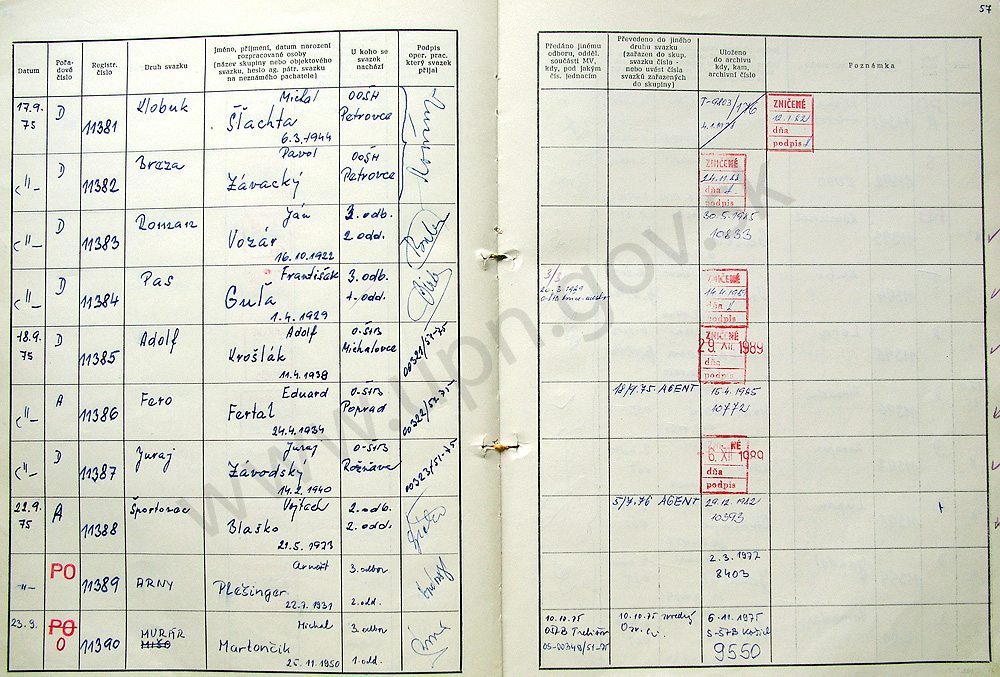 57
Datum
Pořadové číslo
Registr. číslo
Druh svazku
Jméno, příjmení, datum narození rozpracované osoby
(název skupiny nebo objektového svazku, heslo ag. pátr. svazku na neznámého pachatele)
U koho se svazek nachází
Podpis oper. prac. který svazek přijal
Předáno jinému odboru, odděl. součásti MV, kdy, pod jakým čís. jednacím
Převedeno do jiného druhu svazku (zařazen do skup. svazku číslo - nebo uvést čísla svazků zařazených do skupiny)
Uloženo do archivu kdy, kam, archivní číslo
Poznámka
17.9. 75 D 11381 Klobuk Michal Šľachta 6.3.1944 OOŠH Petrovce
ZNIČENÉ dňa podpis
-"- D 11382 Pavol Závacký OOŠH Petrovce
ZNIČENÉ dňa podpis
-"- D 11383 Roman Ján Vozár 16.10.1922 3. odb. 2. odd. 30.5.1985 10833
-"- D 11384 Pas František Guľa 1.4.1929 3. odb. 1. odd.
ZNIČENÉ dňa podpis
18.9. 75 D 11385 Adolf Adolf Krošlák 11.4.1938 O-ŠtB Michalovce 00321/51-75
ZNIČENÉ 29. XII. 1989 dňa podpis
-"- A 11386 Fero Eduard Fertal 24.4.1934 O-ŠtB Poprad 00322/52-75 18/9.75. AGENT 10772
-"- D 11387 Juraj Juraj Závodský 14.2.1940 O-ŠtB Rožňava 00323/51-75
6. XII 1989 dňa podpis
22.9. 75 A 11388 Športovec Vojtech Blaško 21.5.1923 2. odb. 2. odd. 5/7.76 AGENT 29.12.1982 10393
-"- PO 11389 ARNY Arnošt Plešinger 22.7.1931 3. odbor 2. odd. 2.3.1977 8403
23.9. PO O 11390 MURÁR MIŠO Michal Martončik 25.11.1950 3. odbor 1. odd. 10.10.75 10.10.75 6.11.1975 9550
www.upn.gov.sk